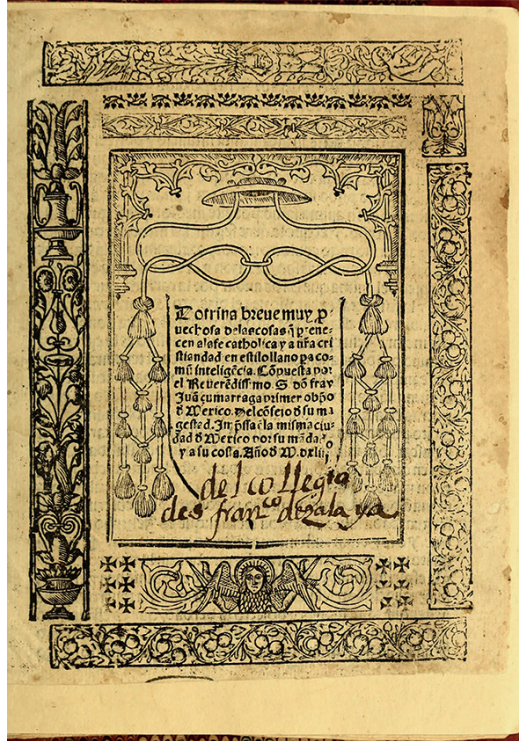 Dotrina breue muy ꝓ
uechosa delas cosas q̃ ꝑtene
cen ala fe catholica y a nr̃a cri
stiandad en estilo llano pa co
mũ inteligẽcia. Cõpuesta por
el Reuerẽdissimo. S. dõ fray
Juã çumarraga primer obp̃o
d̾ Mexico. Del cõsejo d̾ su ma
gestad. Inp̃ssa ẽla misma ciu
dad d̾ Mexico por su mãdado
y a su costa. Año d̾ M. dxliij
del collegio
de s franco de zalaya